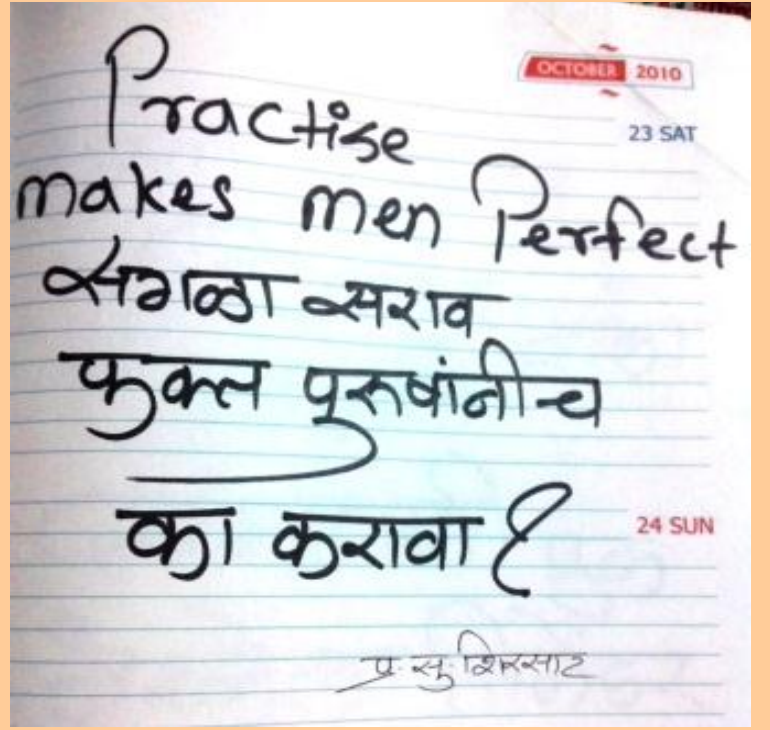 OCTOBER 2010
Practise
23 SAT
makes men Perfect
सगळा सराव
फक्त पुरूषांनीच
का करावा?
24 SUN
प्र. सु. शिरसाट